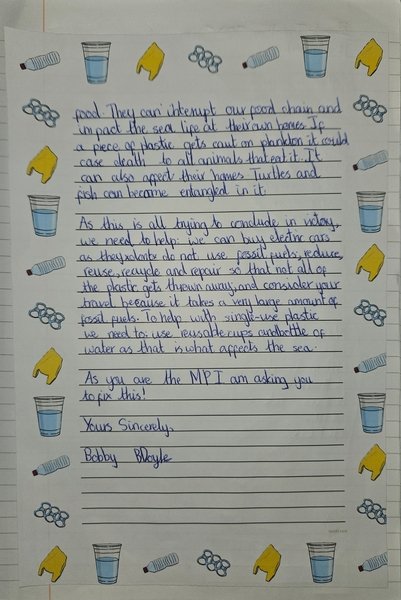 food. They can interrupt our food chain and
impact the sea life at their own homes. If
a piece of plastic gets caut on plankton it could
case death to all animals that eat it. It
can also affect their homes. Turtles and
fish can become entangled in it.
As this is all trying to conclude in victory,
we need to help: we can buy electric cars
as they do not use fossil fuels; reduce,
reuse, recycle and repair so that not all of
the plastic gets thrown away; and consider your
travel because it takes a very large amount of
fossil fuels. To help with single-use plastic
we need to: use reusable cups and bottle of
water as that is what affects the sea.
As you are the MP I am asking you
to fix this!
Yours Sincerely,
Bobby